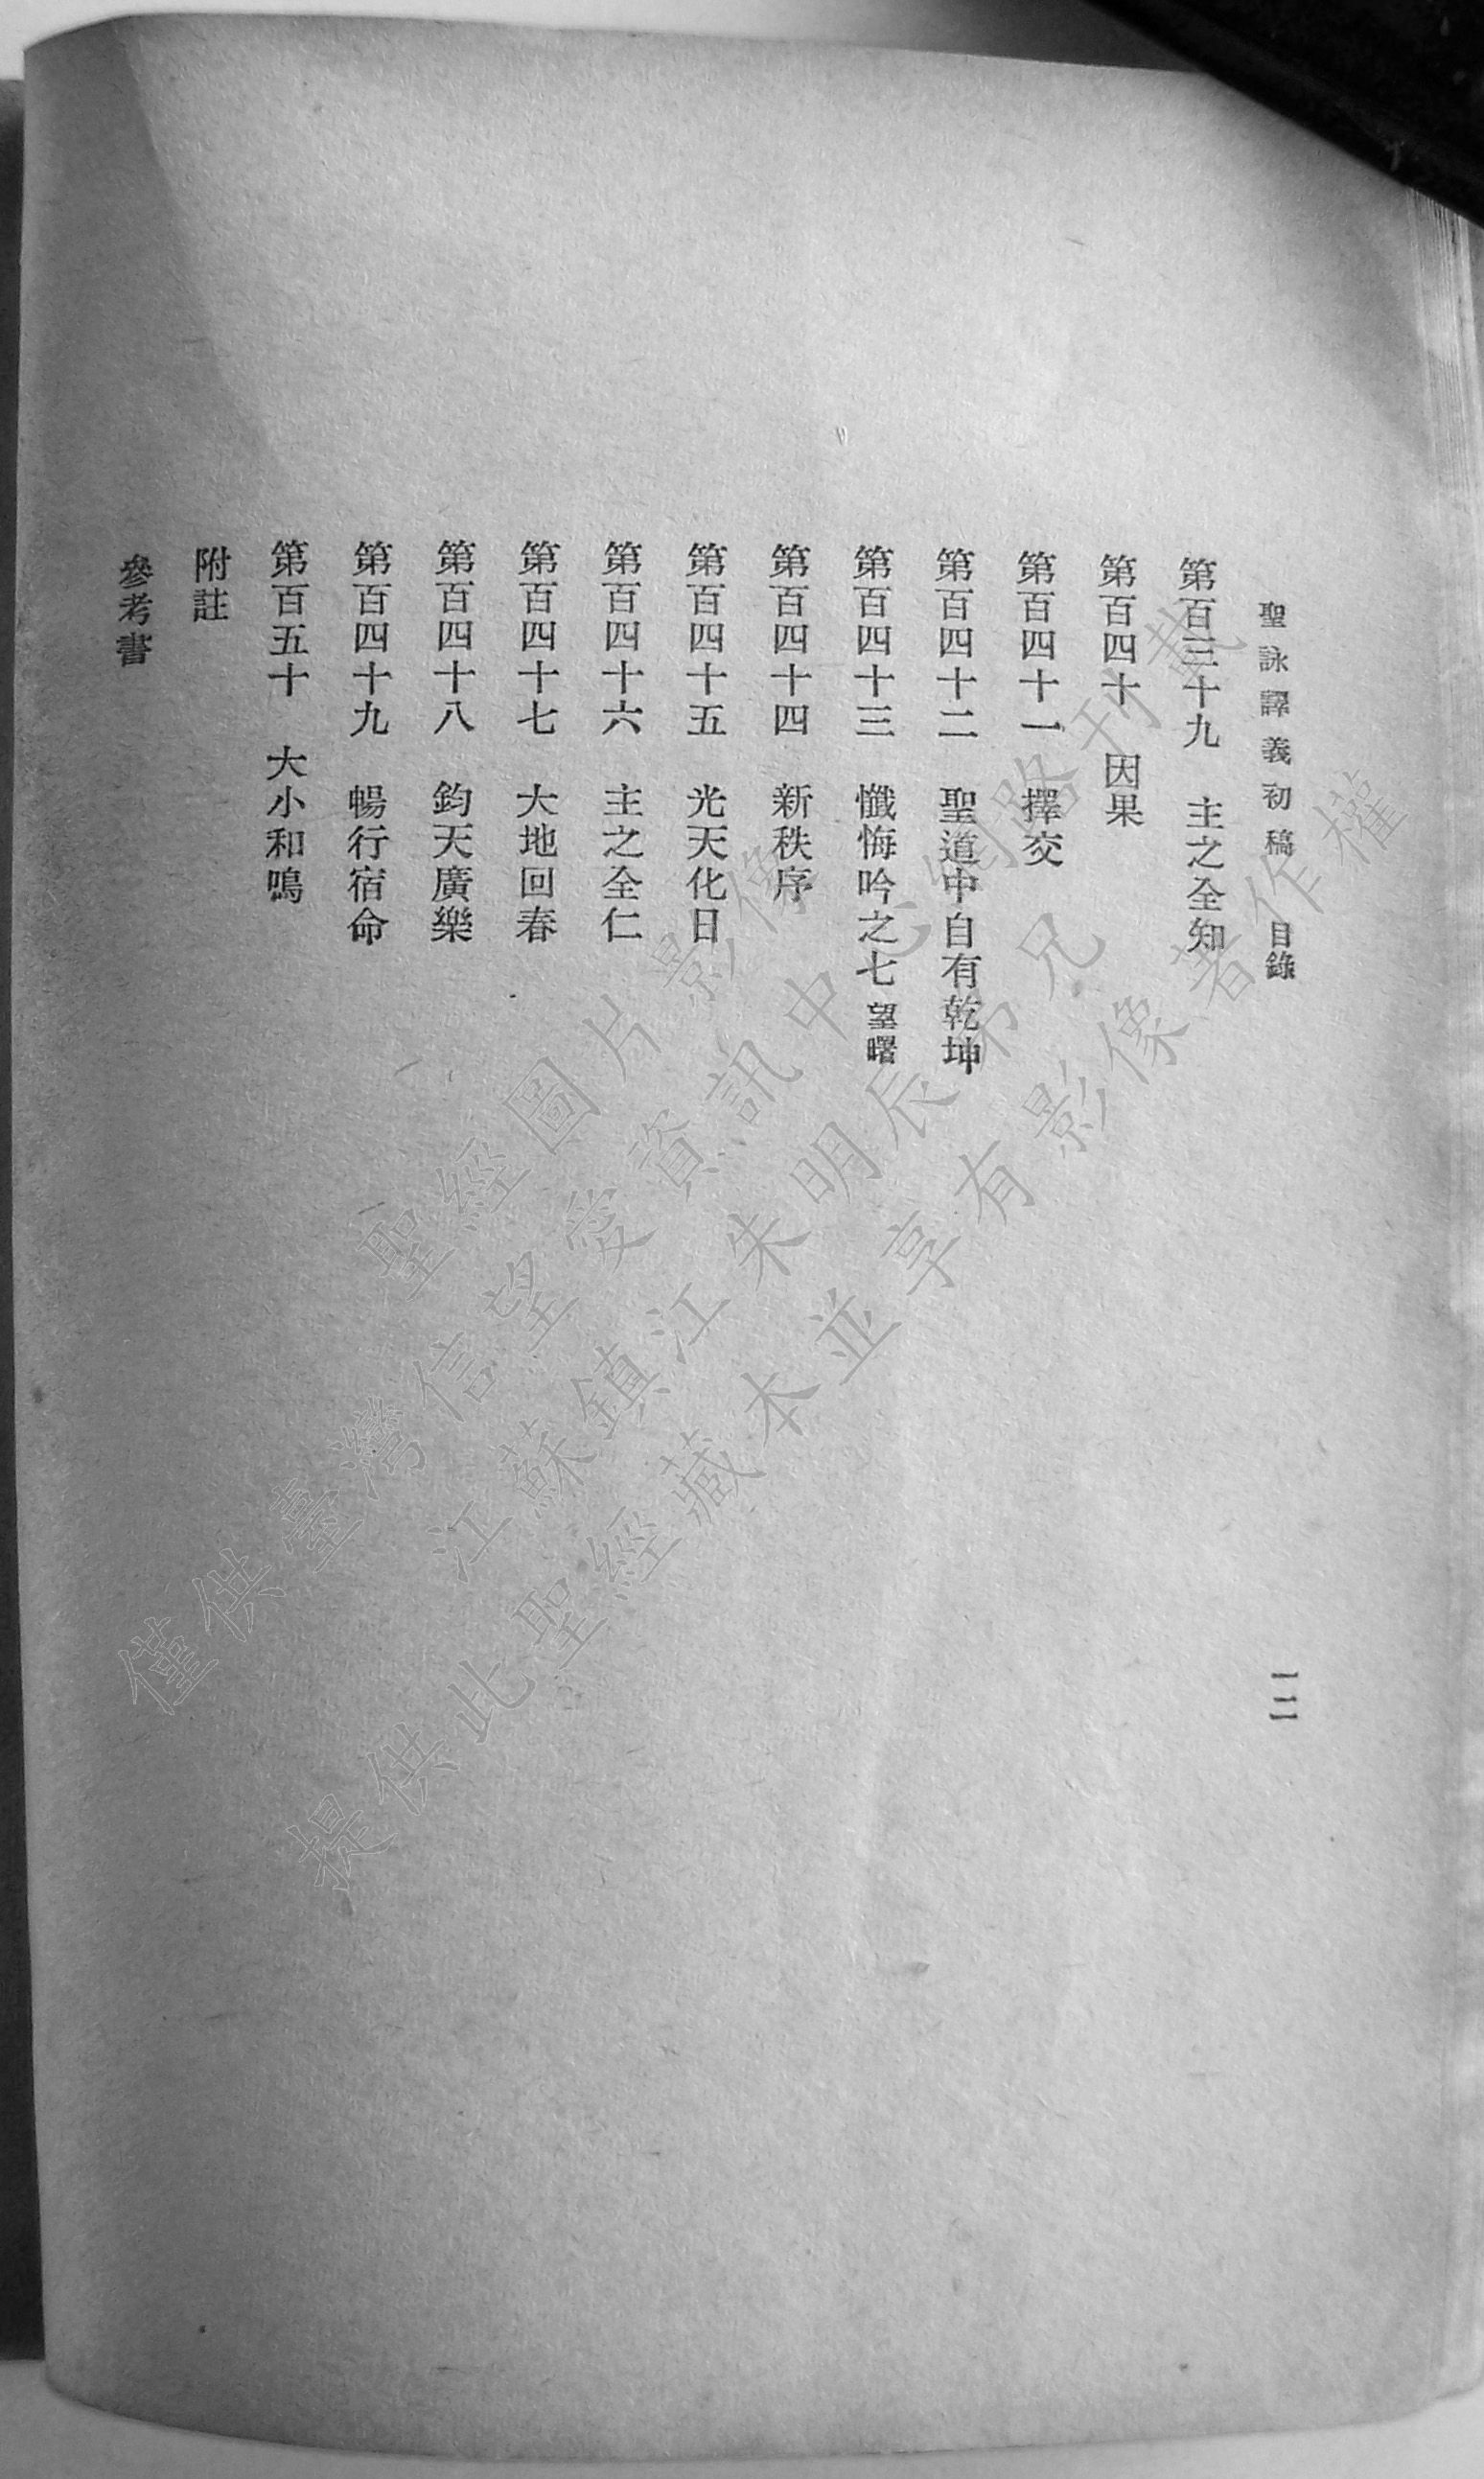 聖詠譯義初稿 目錄
一二
第百三十九 主之全知
第百四十 因果
第百四十一 擇交
第百四十二 聖道中自有乾坤
第百四十三 懺悔吟之七 望曙
第百四十四 新秩序
第百四十五 光天化日
第百四十六 主之全仁
第百四十七 大地回春
第百四十八 鈞天廣樂
第百四十九 暢行宿命
第百五十 大小和鳴
附註
參考書
聖經圖片影像
僅供臺灣信望愛資訊中心網路刊載
江蘇鎮江朱明辰弟兄
提供此聖經藏本並享有影像著作權